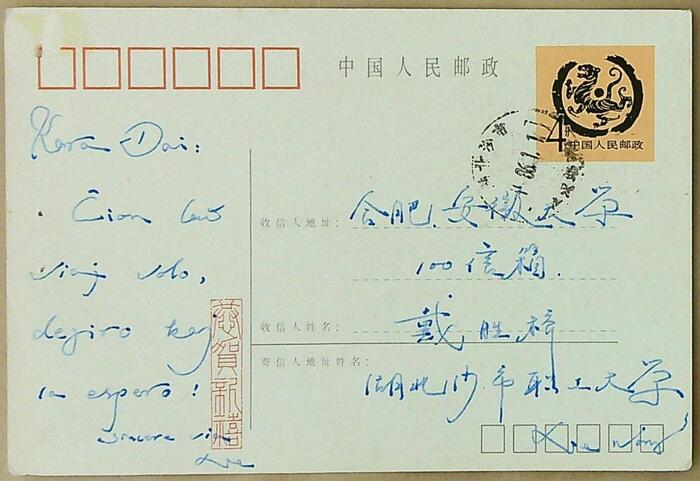 中国人民邮政
4分
中国人民邮政
86.1.1
Kara Dai:
Ĉion laŭ
viaj volo,
deziro kaj
la espero!
sincere via
恭賀新禧
收信人地址:
合肥.安徽大学
100信箱.
收信人姓名:
戴胜梓
寄信人地址姓名:
湖北沙市职工大学